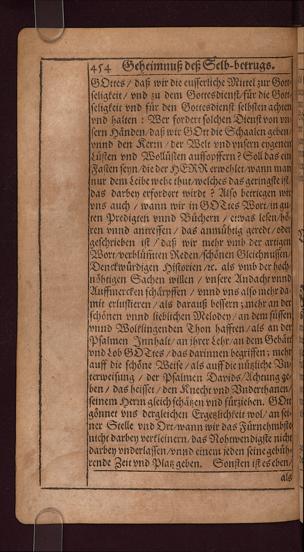 454 Geheimnuß deß Selb-betrugs.
GOttes / daß wir die eusserliche Mittel zur Gott-
seligkeit / vnd zu dem Gottesdienst / für die Gott-
seligkeit vnd für den Gottesdienst selbsten achten
vnd halten: Wer fordert solchen Dienst von vn-
sern Händen / daß wir GOtt die Schaalen geben /
vnnd den Kern / der Welt vnd vnsern eygenen
Lüsten vnd Wollüsten auffopffern? Soll das ein
Fasten seyn / die der HERR erwehlet / wann man
nur dem Leibe wehe thut / welches das geringste ist /
das darbey erfordert wirdt? Also betriegen wir
vns auch / wann wir in GOttes Wort / in gu-
ten Predigten vnnd Büchern / etwas lesen / hö-
ren vnnd antreffen / das anmühtig geredt / oder
geschrieben ist / daß wir mehr vmb der artigen
Wort / verblümten Reden / schönen Gleichnussen /
Denckwürdigen Historien / etc. als vmb der hoch-
nöhtigen Sachen willen / vnsere Andacht vnnd
Auffmercken schärpffen / vnnd vns also mehr da-
mit erlustieren / als darauß bessern; mehr an der
schönen vnnd lieblichen Melodey / an dem süssen
vnnd Wolklingenden Thon hafften / als an der
Psalmen Innhalt / an ihrer Lehr / an dem Gebätt
vnd Lob GOttes / das darinnen begriffen; mehr
auff die schöne Weise / als auff die nützliche Vn-
terweisung / der Psalmen Davids Achtung ge-
ben / das heisset / den Knecht vnd Vnderthanen /
seinem Herrn gleich schätzen vnd fürziehen. GOtt
gönnet vns dergleichen Ergetzligkeit wol / an sei-
ner Stelle vnd Ort / wann wir das Fürnehmbste
nicht darbey verkleinern / das Nohtwendigste nicht
darbey vnderlassen / vnnd einem jeden seine gebüh-
rende Zeit vnd Platz geben. Sonsten ist es eben /
als